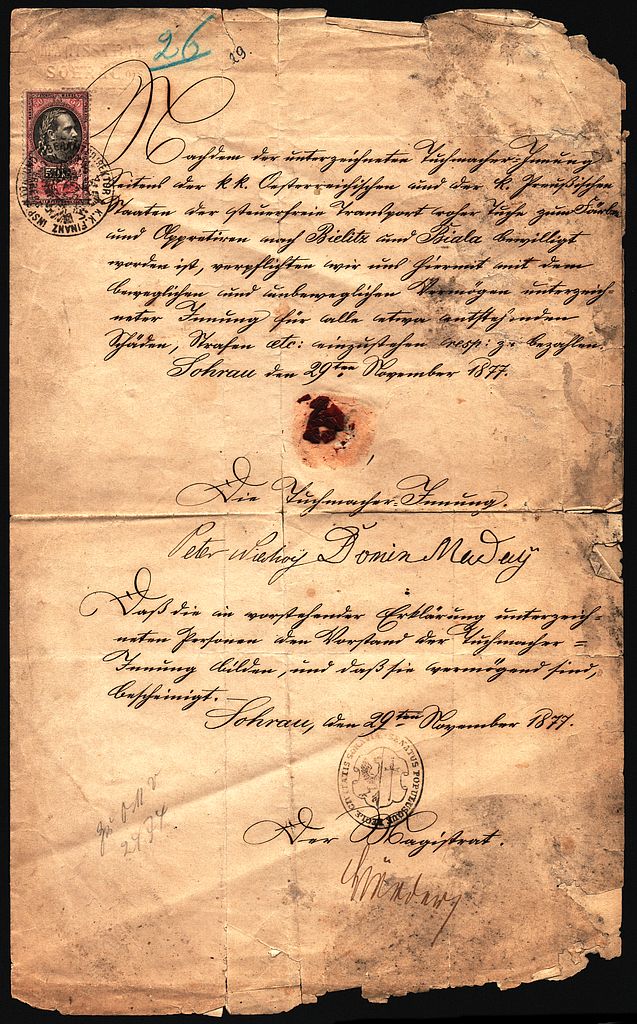 26
29.
Nachdem der unterzeichneten Tuchmacher-Innung
Seitens der k.k. Oesterreichischen und der K. Preußischen
Staaten der steuerfreie Transport roher Tuche zum Färben
und Appretiren nach Bielitz und Biala bewilligt
worden ist, verpflichten wir uns hiermit mit dem
beweglichen und unbeweglichen Vermögen unterzeich-
neter Innung für alle etwa entstehenden
Schäden, Strafen etc: einzustehen resp: z. bezahlen.
Sohrau den 29ten November 1877.
Die Tuchmacher-Innung.
Peter Donin Maday
Daß die in vorstehender Erklärung unterzeich-
neten Personen den Vorstand der Tuchmacher=
Innung bilden, und daß sie vermögend sind,
bescheinigt.
Sohrau, den 29ten November 1877.
SENATUS POPULUSQUE CIVITATIS
Der Magistrat.